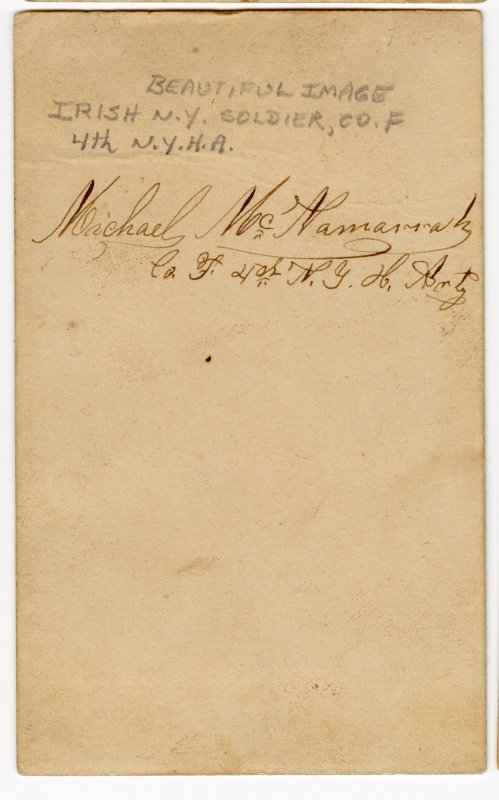 BEAUTIFUL IMAGE
IRISH N.Y. SOLDIER, CO. F
4th N.Y.H.A.
Michael McNamarrah
Co F. 4th N. Y. H. Arty